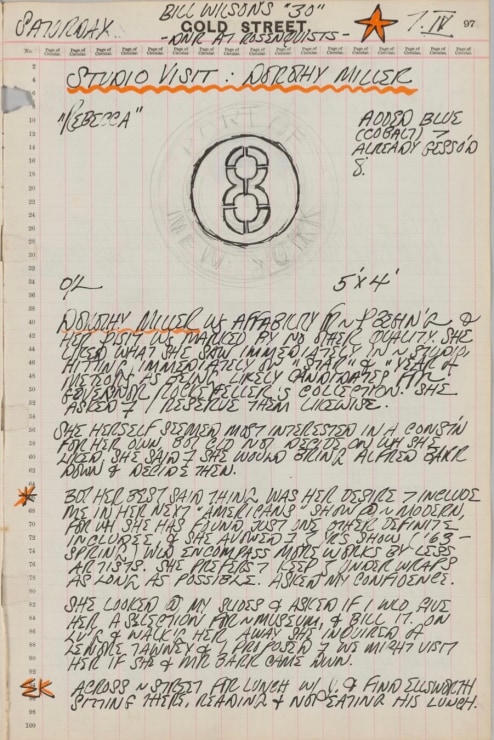 BILL WILSON'S "30"
SATURDAY.. COLD STREET 7.IV 97
-DNR AT ROSENQUISTS-
STUDIO VISIT : DOROTHY MILLER
"REBECCA"
ADDED BLUE
(COBALT) 7
ALREADY GESSO'D
8.
PORT OF
8
NEW YORK
O/L 5'X4'
DOROTHY MILLER WS AFFABILITY FR N BEGIN'G &
HER VISIT WS MARKED BY NO OTHER QUALITY. SHE
LIKED WHAT SHE SAW IMMEDIATELY IN N STUDIO
HITTING IMMEDIATELY ON "STAR" & "YEAR OF
METEORS" AS BEING LIKELY CANDIDATES FR
GOVERNOR ROCKEFELLER'S COLLECTION. SHE
ASKED 7 I RESERVE THEM LIKEWISE.
SHE HERSELF SEEMED MOST INTERESTED IN A CONST'N
FOR HER OWN, BUT CLD NOT DECIDE ON WH SHE
LIKED. SHE SAID 7 SHE WOULD BRING ALFRED BARR
DOWN & DECIDE THEN.
BUT HER BEST SAID THING WAS HER DESIRE 7 INCLUDE
ME IN HER NEXT "AMERICANS" SHOW @ N MODERN,
FOR WH SHE HAS FOUND JUST ONE OTHER DEFINITE
INCLUDEE, & SHE AVOWED 7 YRS SHOW ('63-
SPRING) WLD ENCOMPASS MORE WORKS BY LESS
ARTISTS. SHE PREFERS 7 KEEP UNDER WRAPS
AS LONG AS POSSIBLE. ASKED MY CONFIDENCE.
SHE LOOKED @ MY SLIDES & ASKED IF I WLD GIVE
HER A SELECTION FOR N MUSEUM, & BILL IT. ON
LV'G & WALK'G HER AWAY SHE INQUIRED OF
LENORE TAWNEY & I PROPOSED 7 WE MIGHT VISIT
HER IF SHE & MR BARR CAME DWN.
EK ACROSS N STREET FOR LUNCH W/ & FIND ELLSWORTH
SITTING THERE, READING & NOT EATING HIS LUNCH.